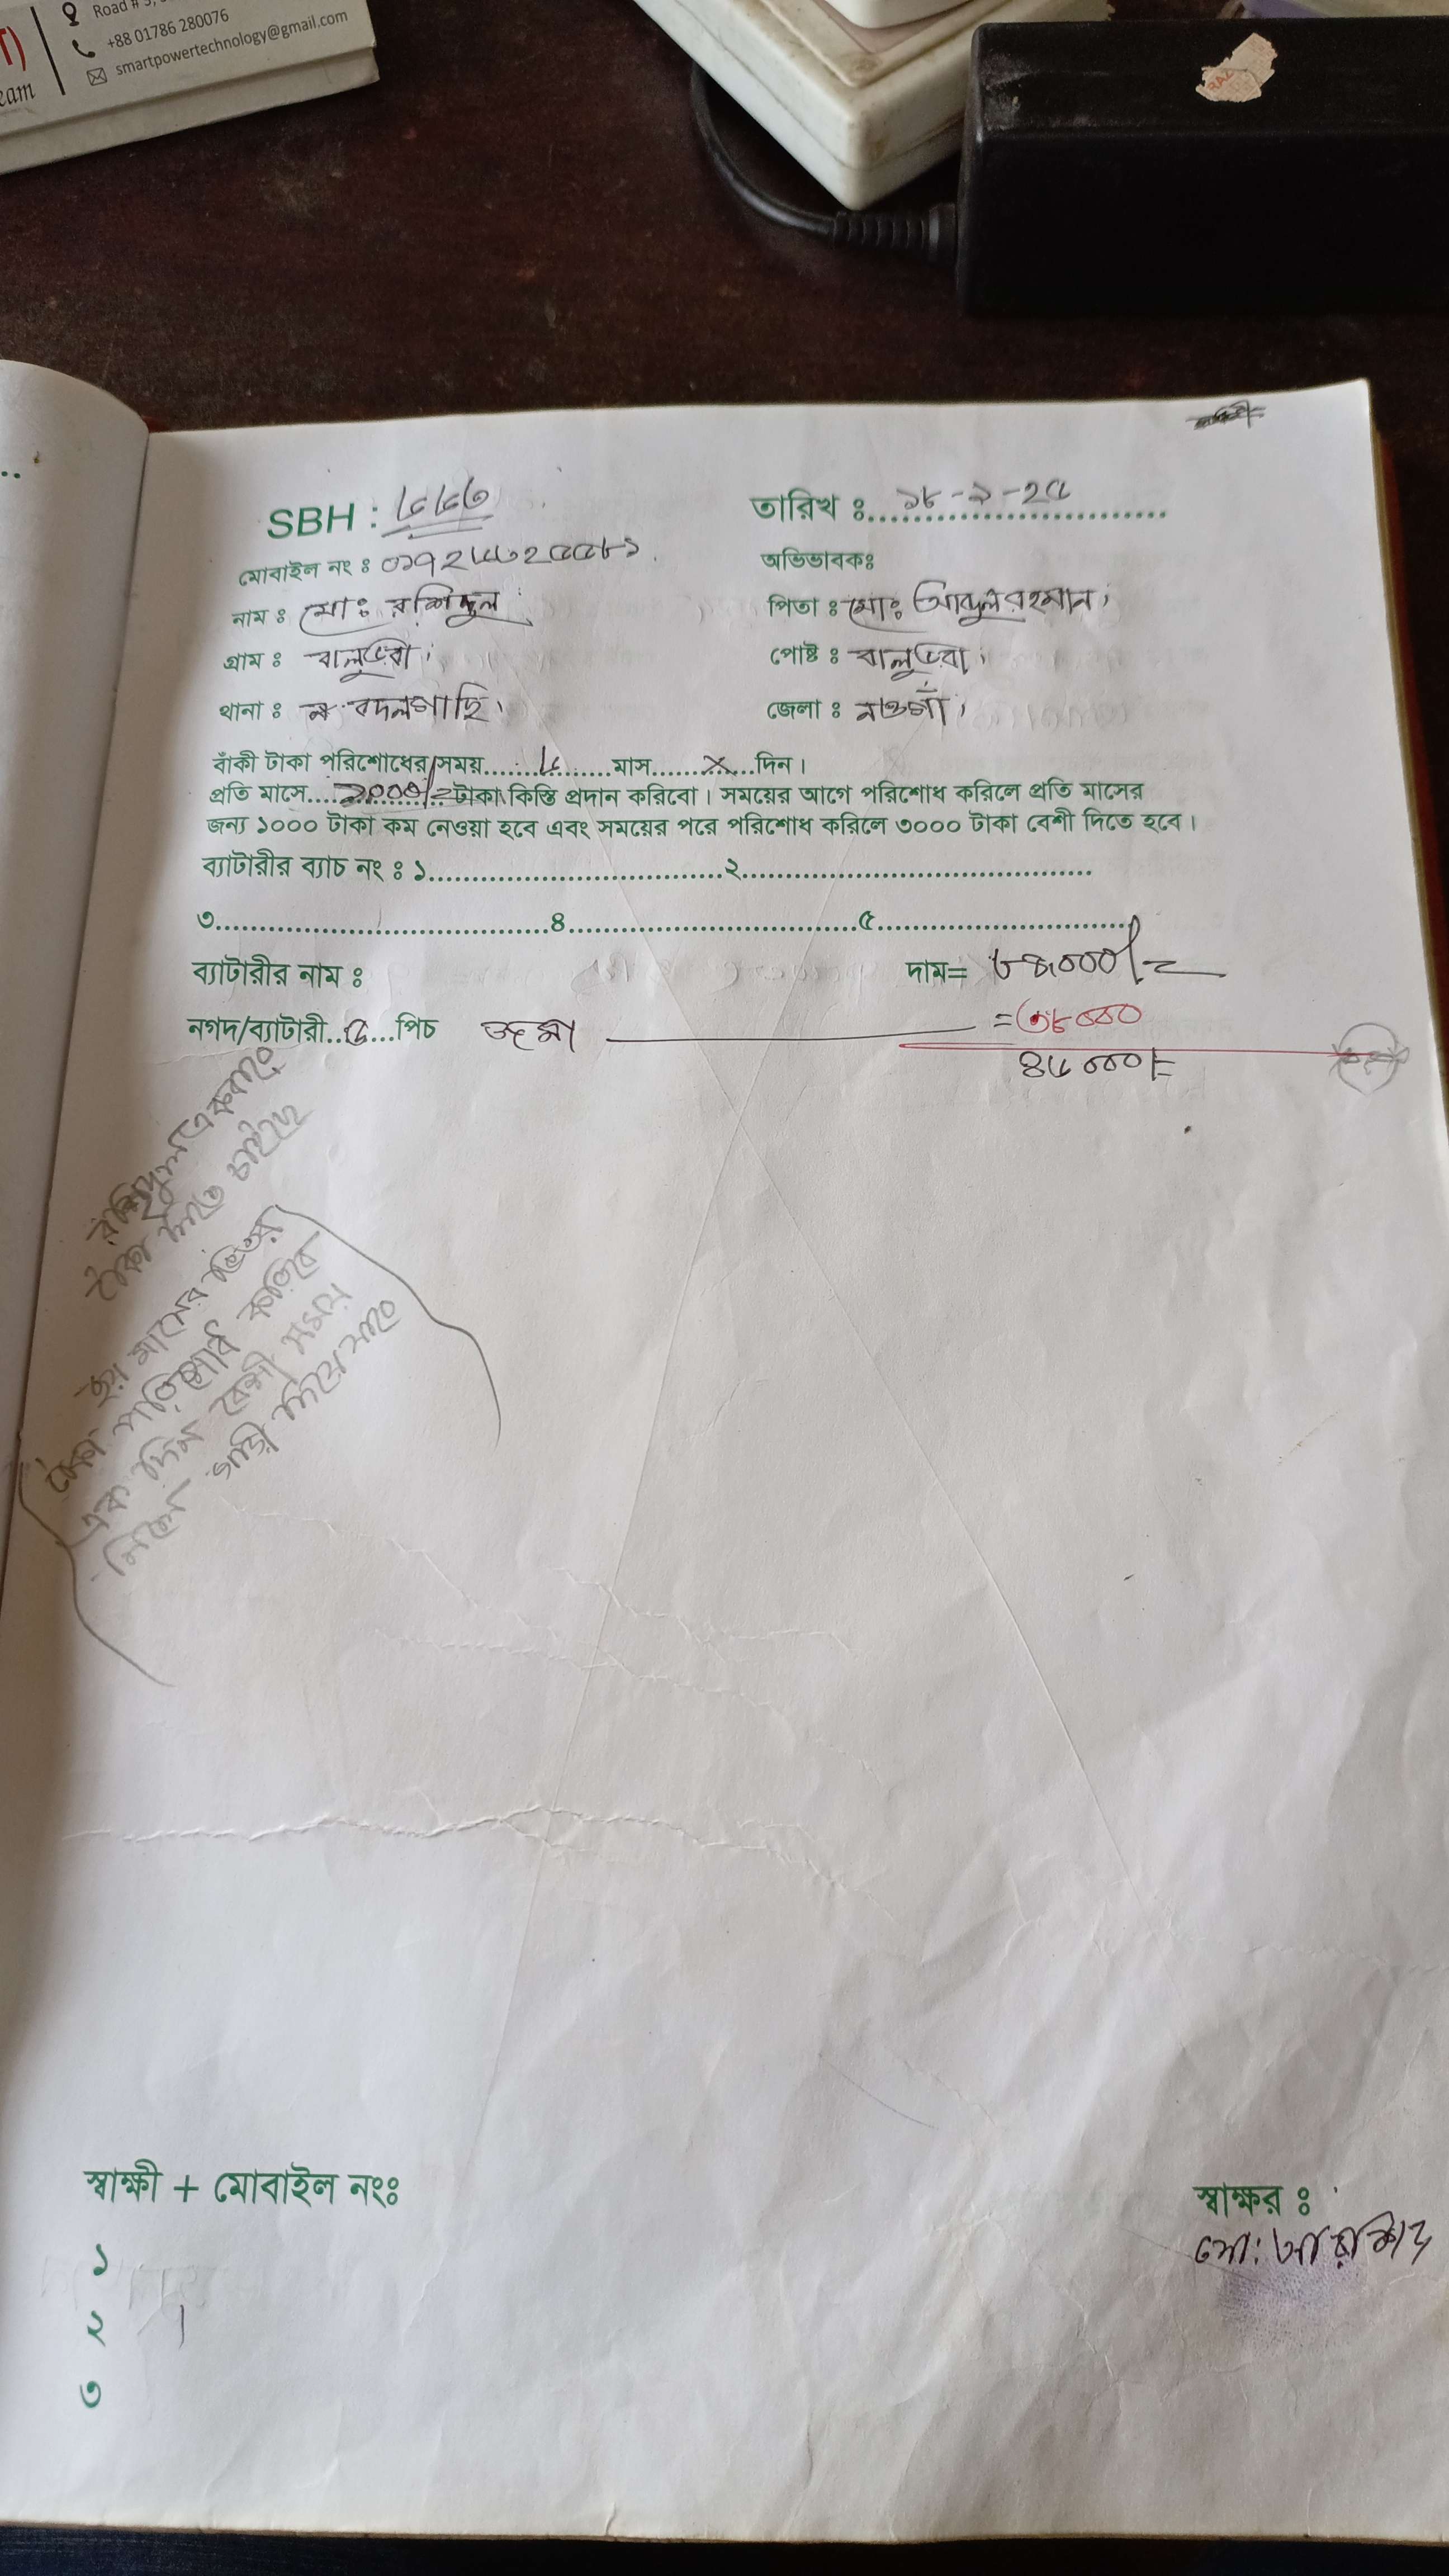 Road # 3,
+88 01786 280076
smartpowertechnology@gmail.com
T)
eam
SBH : ৬৬৩ তারিখ ঃ ১৮-৯-২৫
মোবাইল নং ঃ অভিভাবকঃ
নাম ঃ মোঃ রশিদুল পিতা ঃ মোঃ আব্দুল রহমান,
গ্রাম ঃ বালুভরা, পোষ্ট ঃ বালুভরা,
থানা ঃ বদলগাছি, জেলা ঃ নওগাঁ,
বাঁকী টাকা পরিশোধের সময়........৬........মাস.......×....দিন।
প্রতি মাসে.... টাকা কিস্তি প্রদান করিবো। সময়ের আগে পরিশোধ করিলে প্রতি মাসের
জন্য ১০০০ টাকা কম নেওয়া হবে এবং সময়ের পরে পরিশোধ করিলে ৩০০০ টাকা বেশী দিতে হবে।
ব্যাটারীর ব্যাচ নং ঃ ১................................২......................................
৩....................................৪...............................৫...........................
ব্যাটারীর নাম ঃ দাম= ৮৪,০০০/=
নগদ/ব্যাটারী..৫...পিচ জমা = ৩৮০০০
৪৬০০০/=
রশিদুল একবারে
টাকা দিতে চাইছে
ছয় মাসের ভিতর
টাকা পরিশোধ করিবে
এক দিন বেশী সময়
নিলে গাড়ী নিয়ে যাবে
স্বাক্ষী + মোবাইল নংঃ স্বাক্ষর ঃ
১ মো:
২
৩